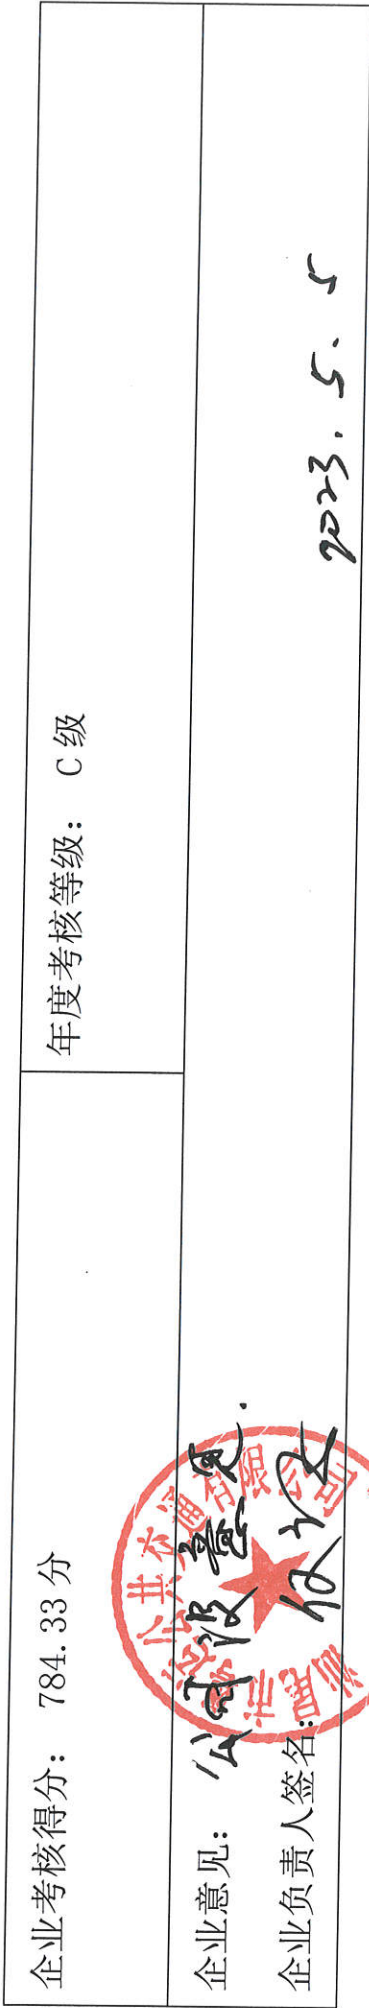 企业考核得分： 784.33 分
年度考核等级： C 级
企业意见： 公司没意见.
企业负责人签名：
2023. 5. 5